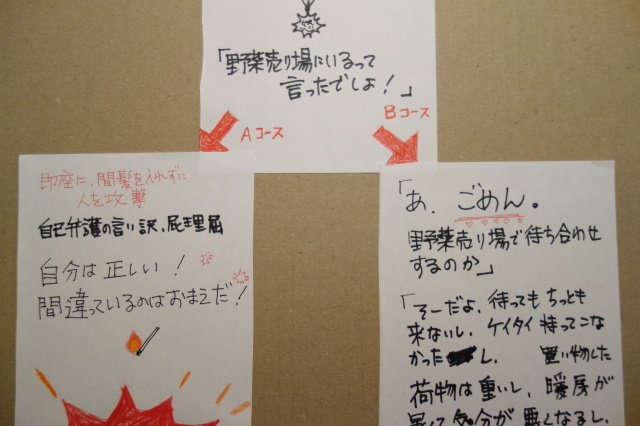 「野菜売り場にいるって
言ったでしょ！」
Aコース
Bコース
即座に、間髪を入れずに
人を攻撃
自己弁護の言い訳、屁理屈
自分は正しい！
間違っているのはおまえだ！
「あ、ごめん。
野菜売り場で待ち合わせ
するのか」
「そーだよ、待っても ちっとも
来ないし、ケイタイ 持ってこな
かったし。 買い物した
荷物は重いし、暖房が
暑くて気分が悪くなるし、